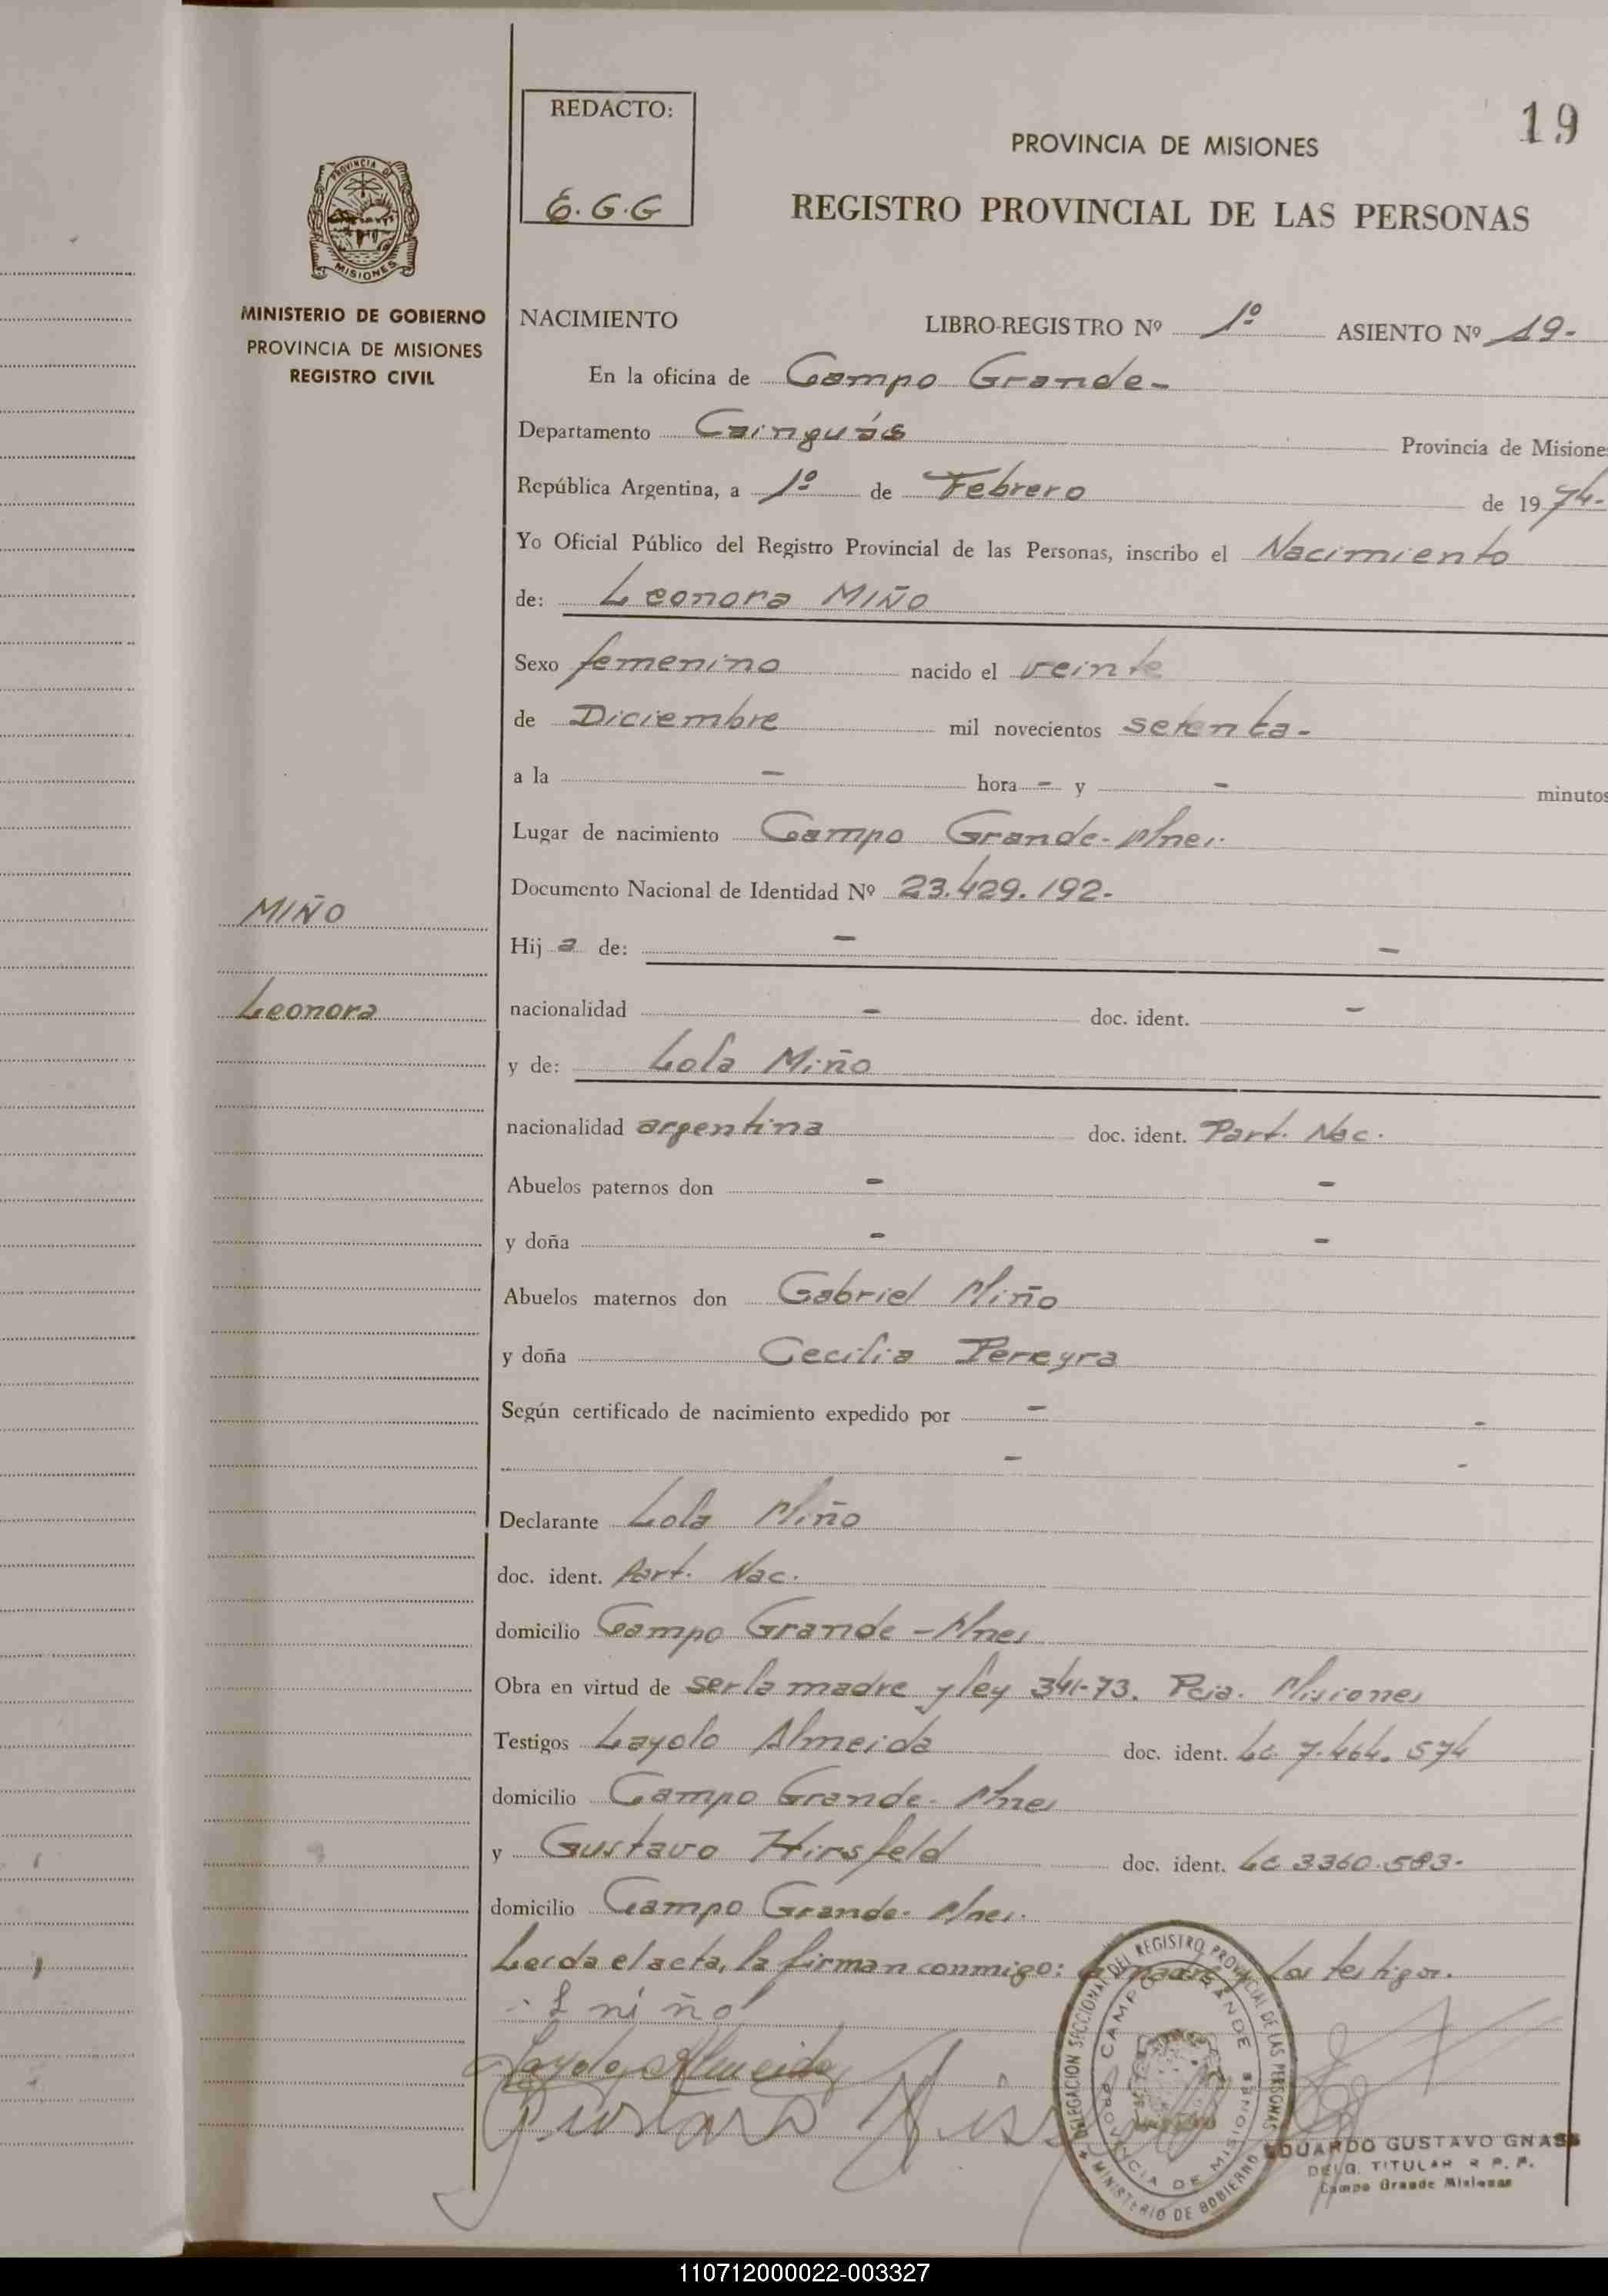 19
REDACTO:
E.G.G
PROVINCIA DE MISIONES
REGISTRO PROVINCIAL DE LAS PERSONAS
PROVINCIA DE
MISIONES
MINISTERIO DE GOBIERNO
PROVINCIA DE MISIONES
REGISTRO CIVIL
NACIMIENTO LIBRO-REGISTRO Nº 1º ASIENTO Nº 19-
En la oficina de Campo Grande-
Departamento Cainguás Provincia de Misione
República Argentina, a 1º de Febrero de 1974-
Yo Oficial Público del Registro Provincial de las Personas, inscribo el Nacimiento
de: Leonora MIÑO
Sexo femenino nacido el veinte
de Diciembre mil novecientos setenta-
a la - hora - y - minutos
Lugar de nacimiento Campo Grande-Mnes.
Documento Nacional de Identidad Nº 23.429.192-
MIÑO
Hija de: - -
Leonora
nacionalidad - doc. ident. -
y de: Lola Miño
nacionalidad argentina doc. ident. Part. Nac.
Abuelos paternos don - -
y doña - -
Abuelos maternos don Gabriel Miño
y doña Cecilia Pereyra
Según certificado de nacimiento expedido por - -
- -
Declarante Lola Miño
doc. ident. Part. Nac.
domicilio Campo Grande-Mnes
Obra en virtud de ser la madre y ley 341-73. Pcia. Misiones
Testigos Layolo Almeida doc. ident. Lc. 7.464.574
domicilio Campo Grande-Mnes
y Gustavo Hirsfeld doc. ident. Lc 3360.593-
domicilio Campo Grande-Mnes.
Leida el acta, la firman conmigo: la madre y los testigos.
L niño
Layolo Almeida
Gustavo
DELEGACION SECCIONAL DEL REGISTRO PROVINCIAL DE LAS PERSONAS
MINISTERIO DE GOBIERNO
CAMPO GRANDE
PROVINCIA DE MISIONES
EDUARDO GUSTAVO GNASS
DELG. TITULAR R. P. P.
Campo Grande Misiones
110712000022-003327